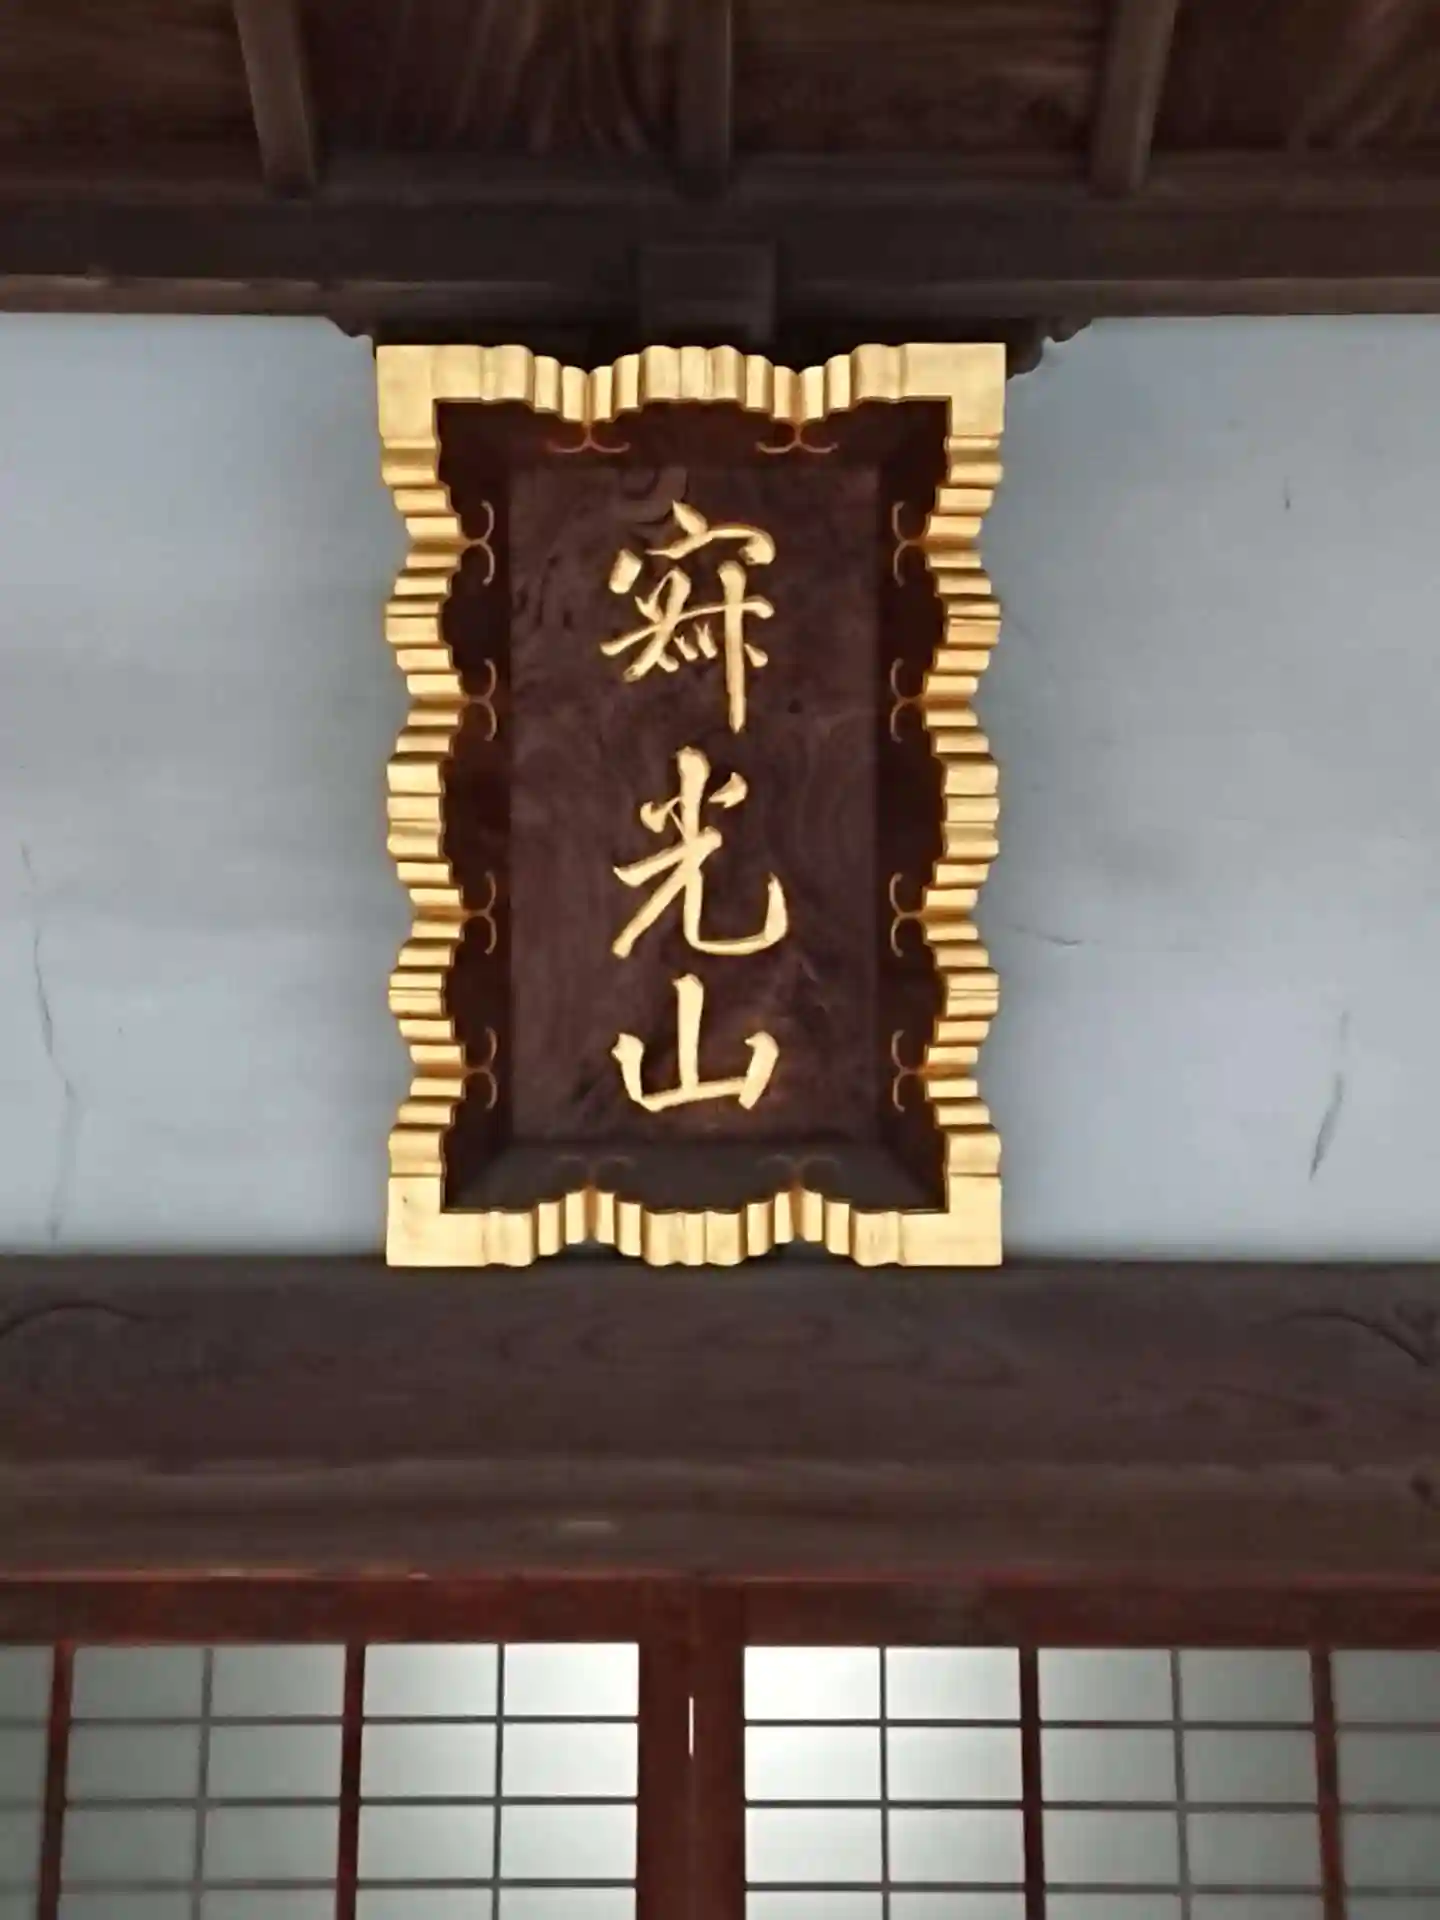 寂光山